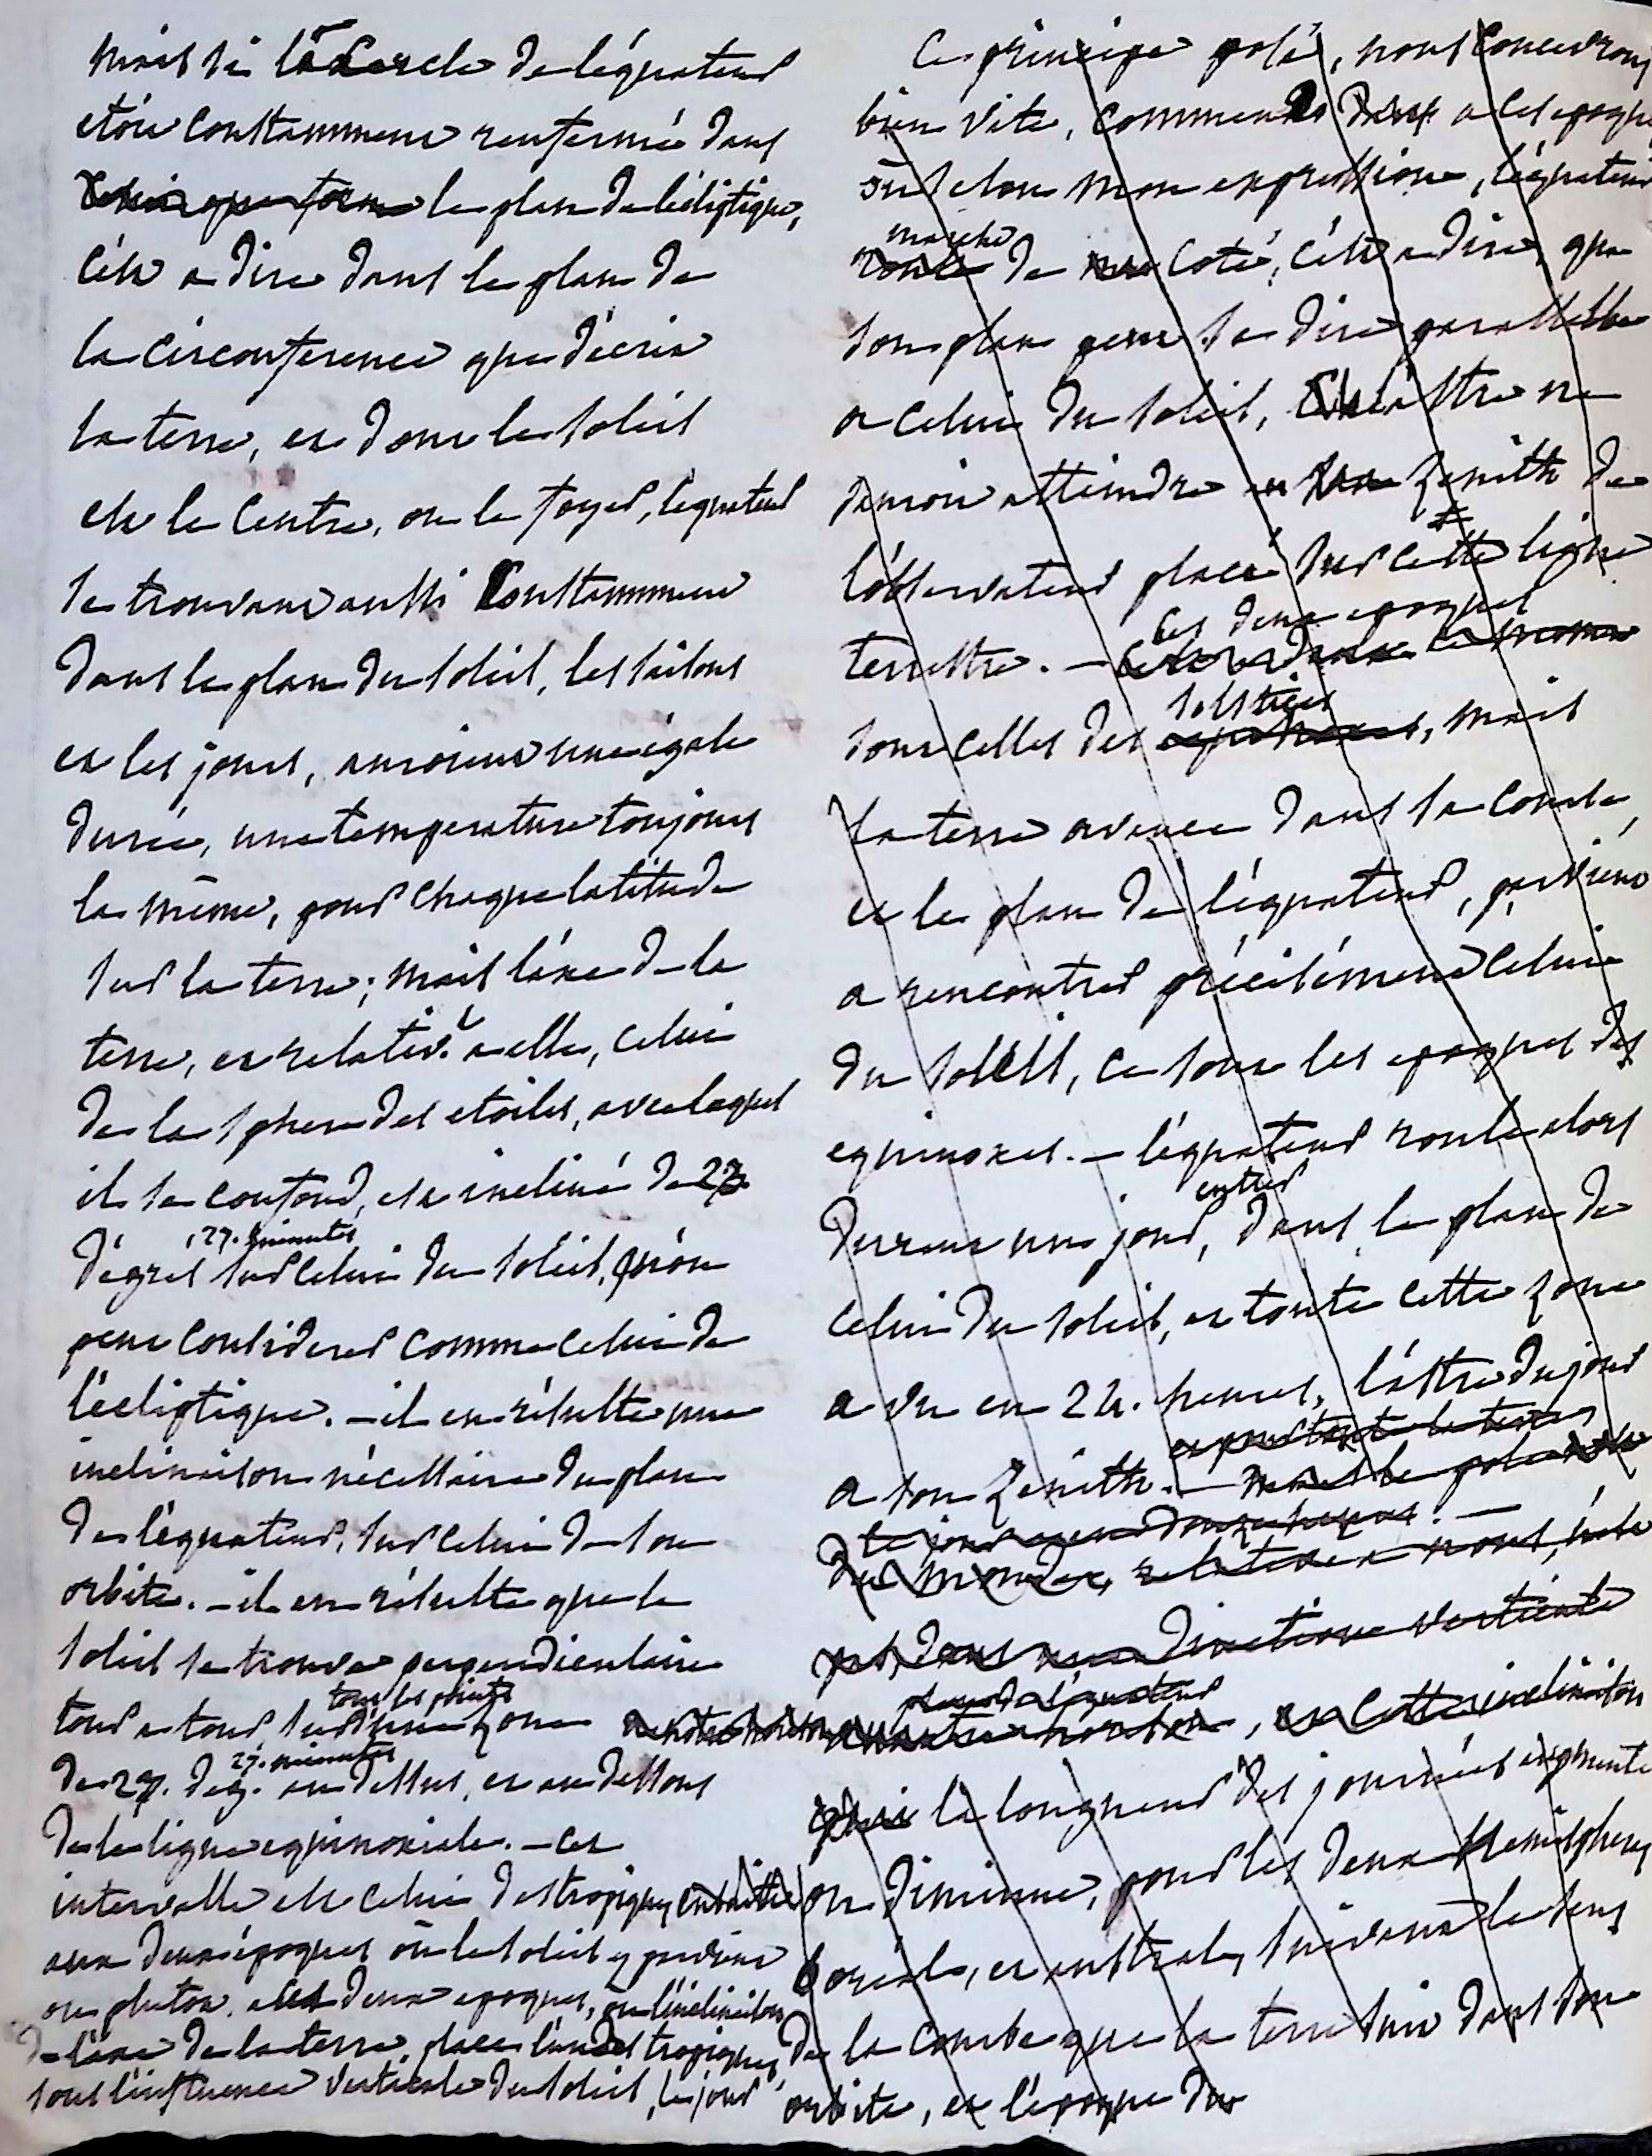 mais si le Cercle de l'équateur
etoit Constamment renfermé dans
le plan de l'écliptique,
C'est a dire dans le plan de
la Circonference que décrit
la terre, et dont le soleil
est le Centre, ou le foyer, l'équateur
se trouvant aussi Constamment
dans le plan du soleil, les saisons
et les jours, auroient une égale
durée, une temperature toujours
la même, pour chaque latitude
sur la terre; mais l'axe de la
terre, et relativt a elle, celui
de la sphere des etoiles, avec lequel
il se confond, est incliné de 23
,27. minutes
dégrés sur celui du soleil, qu'on
peut Considerer comme celui de
l'écliptique. - il en résulte une
inclinaison nécessaire du plan
de l'équateur, sur celui de son
orbite. - il en résulte que le
soleil se trouve perpendiculaire
tous les points
tour a tour sur d'une zone
27. minutes
de 23. deg. au dessus, et au dessous
de la ligne equinoxiale. - cet
intervalle est celui des tropiques
aux deux époques où le soleil y parvient
ou plutot, aux deux epoques, où l'inclinaison
de l'axe de la terre, place l'un des tropiques
sous l'influence verticale du soleil, le jour
Ce principe posé, nous concevrons
bien vite, comment a les epoques
où selon mon expression, l'équateur
marche
roule de coté, c'est a dire, que
son plan peut se dire parallelle
a celui du soleil, l'astre ne
sauroit atteindre au zenith de
l'observateur placé sur cette ligne
Ces deux epoques
terrestre. -
solstices
sont celles des equinoxes, mais
la terre avance dans sa course,
et le plan de l'équateur, parvient
a rencontrer précisément celui
du soleil, ce sont les epoques des
equinoxes. - l'équateur roule alors
entier
durant un jour, dans le plan de
celui du soleil, et toute cette zone
a vu en 24. heures, l'astre du jour
et pour toute la terre
a son zenith. - mais le pole
le jour a douze heures. -
du monde, relativt a nous, n'est
pas dans une direction verticale
plan de l'équateur
a notre horison, et cette inclinaison
la longueur des journées augmente
ou diminue, pour les deux hemispheres
boréale, et australe, suivant le sens
de la courbe que la terre suit dans son
orbite, et l'époque du